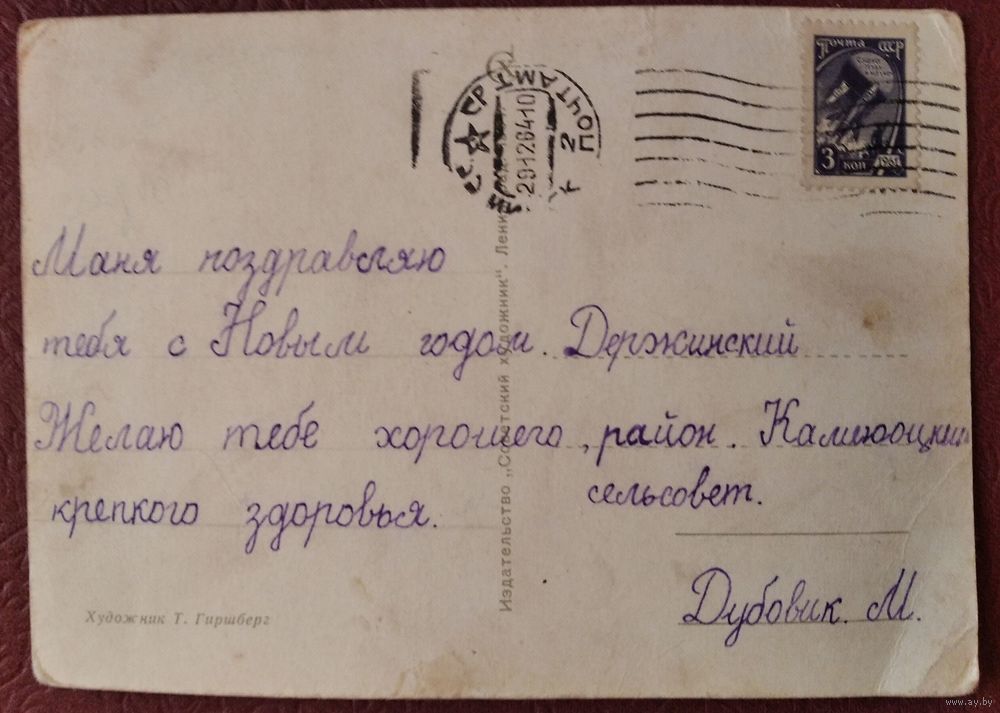 Почта СССР
3 коп 1961
ПОЧТАМТ
29.12.64.10
Маня поздравляю
тебя с Новым годом.
Желаю тебе хорошего,
крепкого здоровья.
Держинский
район.
сельсовет.
Дубовик. М.
Издательство „Советский художник“.
Художник Т. Гиршберг
www.ay.by